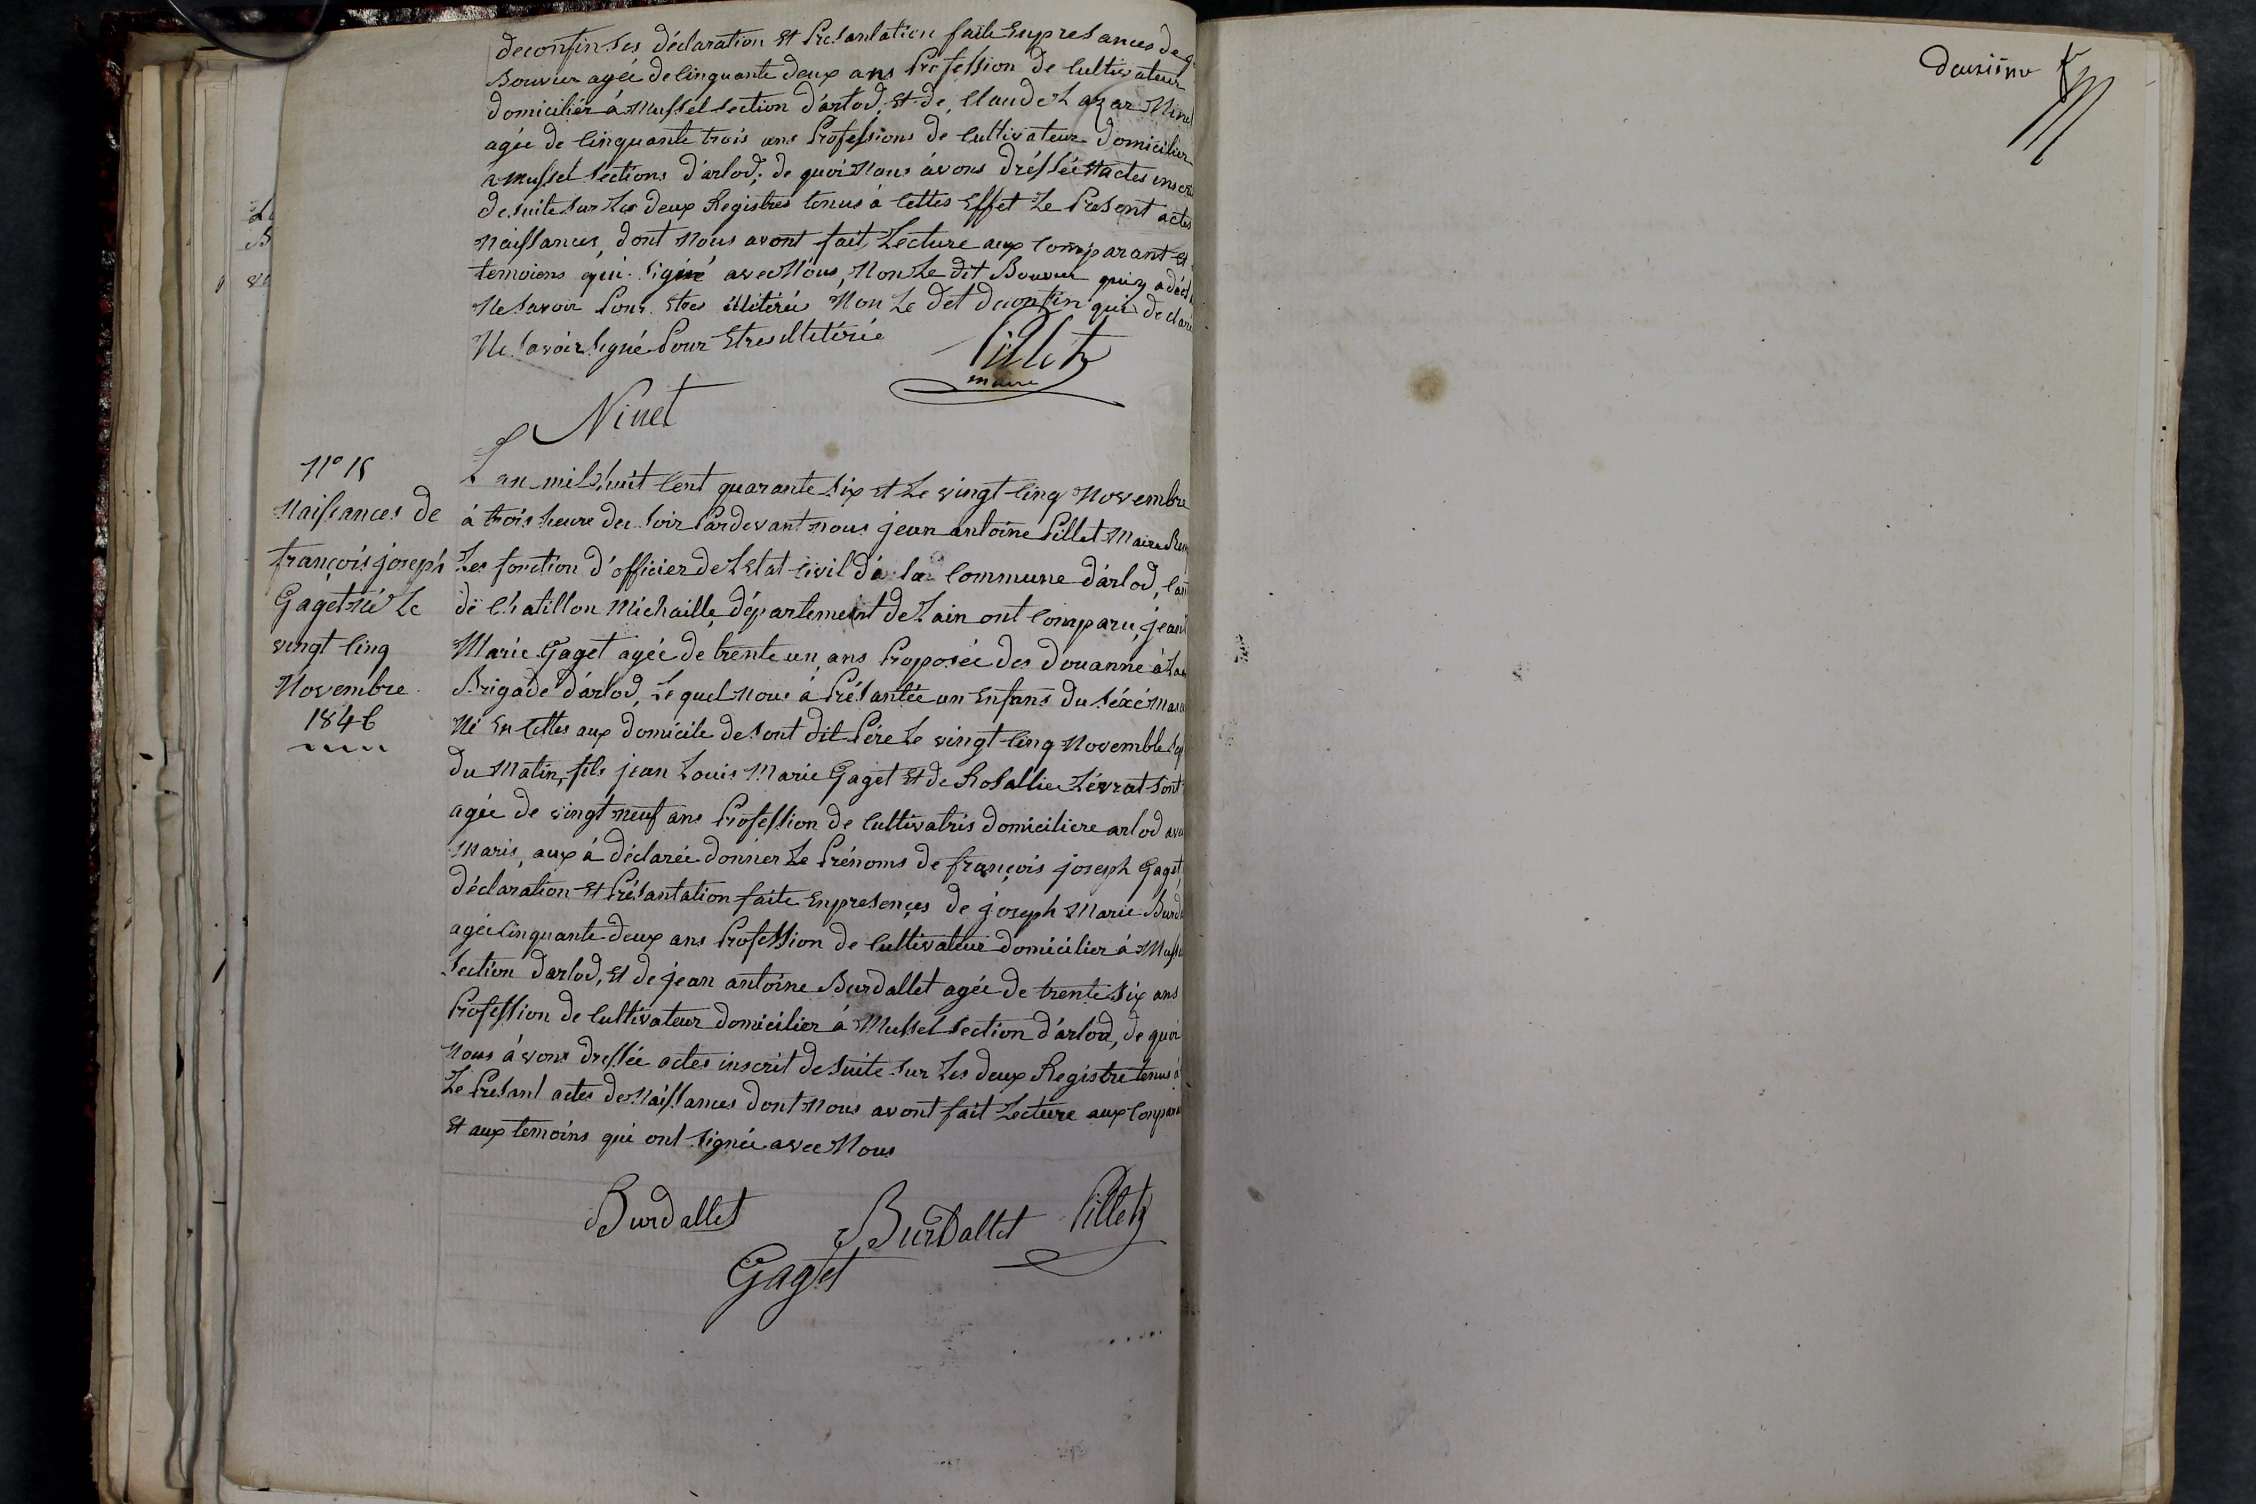 decontin ses déclaration Et Présantation faite Enpresances de
Bouvier agée de Cinquante deux ans Profession de Cultivateur
domicilier à Mussel section d'arlod, Et de, Claude Lazar Ninet
agée de Cinquante trois ans Professions de Cultivateur domicilier
a Mussel sections d'arlod; de quoi Nous àvons dréssée actes inscri
de suite sur Les deux Registres tenus à Cettes Effet Le Présent actes
Naissances, dont Nous avont fait Lecture aux Comparant et
temoiens qui signé avec Nous, Non Le dit Bouvier qui a décl
Ne savoir Pour Etres illitéré Non Le dit decontin qui déclaré
Ne savoir signé Pour Etres illitérée
Pillet
maire
Ninet
N° 15
Naissances de
françois joseph
Gaget né Le
vingt Cinq
Novembre
1846
L'an mil huit Cent quarante six et Le vingt Cinq Novembre
à trois heure du soir Pardevant nous jean antoine Pillet Maire
Les fonction d'officier de L'Etat Civil dé la Commune d'arlod, Can
de Chatillon Michaille, département de Lain ont Comparu, jean
Marie Gaget agée de trente un ans Proposée des douanne à La
Brigade d'arlod, Le quel nous à Présantée un Enfans du séxé mas
Né En Cettes aux domicile de sont dit Pére Le vingt Cinq Novemble
du Matin, fils jean Louis Marie Gaget Et de Rosallie Lévrat sont
agée de vingt neuf ans Profession de Cultivatris domiciliere arlod ave
Maris, aux à déclarée donner Le Prénoms de françois joseph Gaget,
déclaration Et Présantation faite Enpresençes de joseph Marie Burd
agée Cinquante deux ans Profession de Cultivateur domicilier à Muss
section d'arlod, Et de jean antoine Burdallet agée de trente six ans
Profession de Cultivateur domicilier à Mussel section d'arlod, de quoi
Nous àvons dressée actes inscrit de suite sur Les deux Registre tenus à
Le Présant actes de Naissances dont Nous avont fait Lecture aux Conpara
Et aux temoins qui ont signée avec Nous
Burdallet Burdallet Pillet
Gaget
deuxième